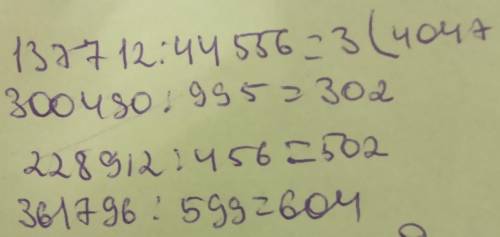 137712:44556=3(4047
300490:995=302
228912:456=502
361796:599=604